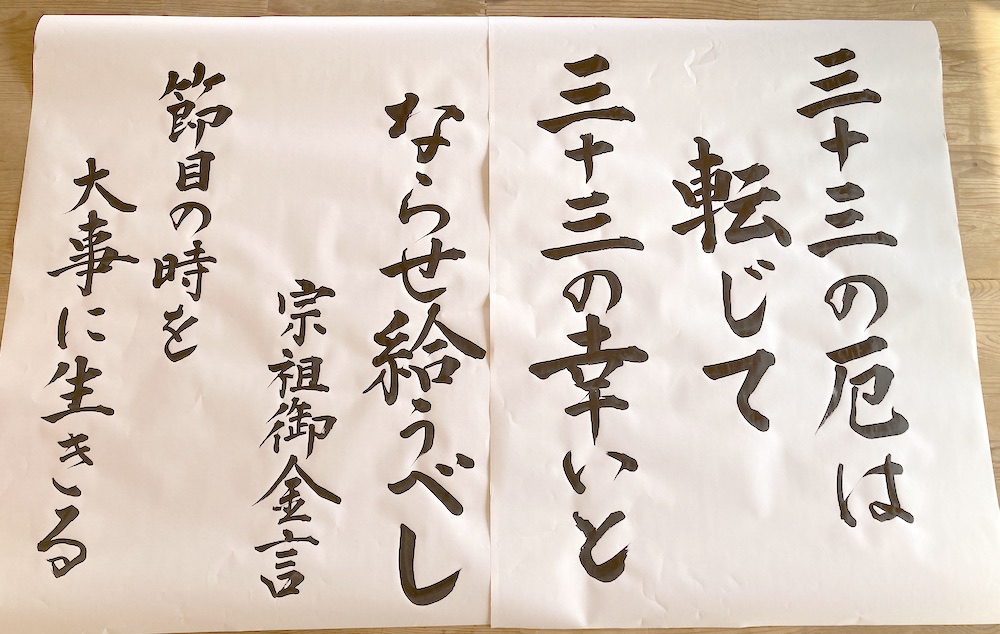 三十三の厄は
転じて
三十三の幸いと
ならせ給うべし
宗祖御金言
節目の時を
大事に生きる